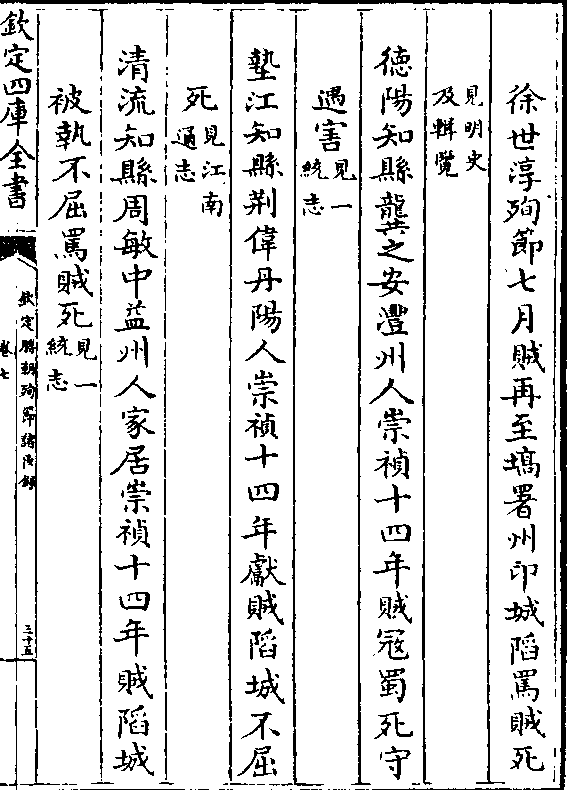 徐世淳殉節七月賊再至塙署州印城䧟罵賊死
見明史
及輯覽
德陽知縣龔之安澧州人崇禎十四年賊冦蜀死守
遇害
見一
統志
墊江知縣荆偉丹陽人崇禎十四年獻賊䧟城不屈
死
見江南
通志
清流知縣周敏中益州人家居崇禎十四年賊䧟城
被執不屈罵賊死
見一
統志
欽定四庫全書
欽定勝朝殉節諸臣録
卷七
三十五